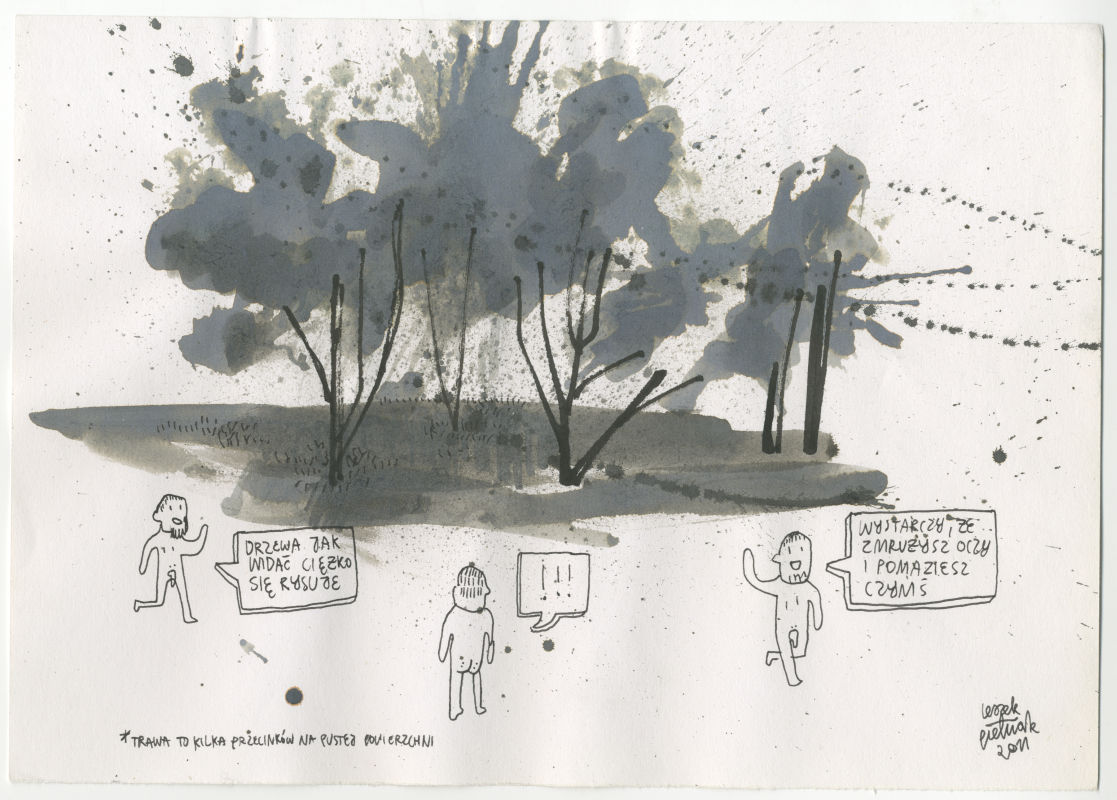 DRZEWA JAK
WIDAĆ CIĘZKO
SIĘ RYSUJE
!!!
WYSTARCZY, ŻE
ZMRUŻYSZ OCZY
I POMAZIESZ
CZYMŚ
*TRAWA TO KILKA PRZECINKÓW NA PUSTEJ POWIERZCHNI
leszek
pietrzak
2011